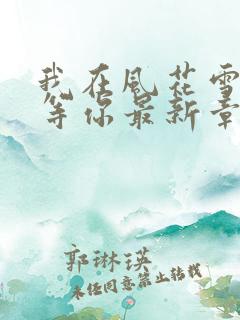 我在风花雪
等你最新章
郭琳瑛
未经同意禁止转载